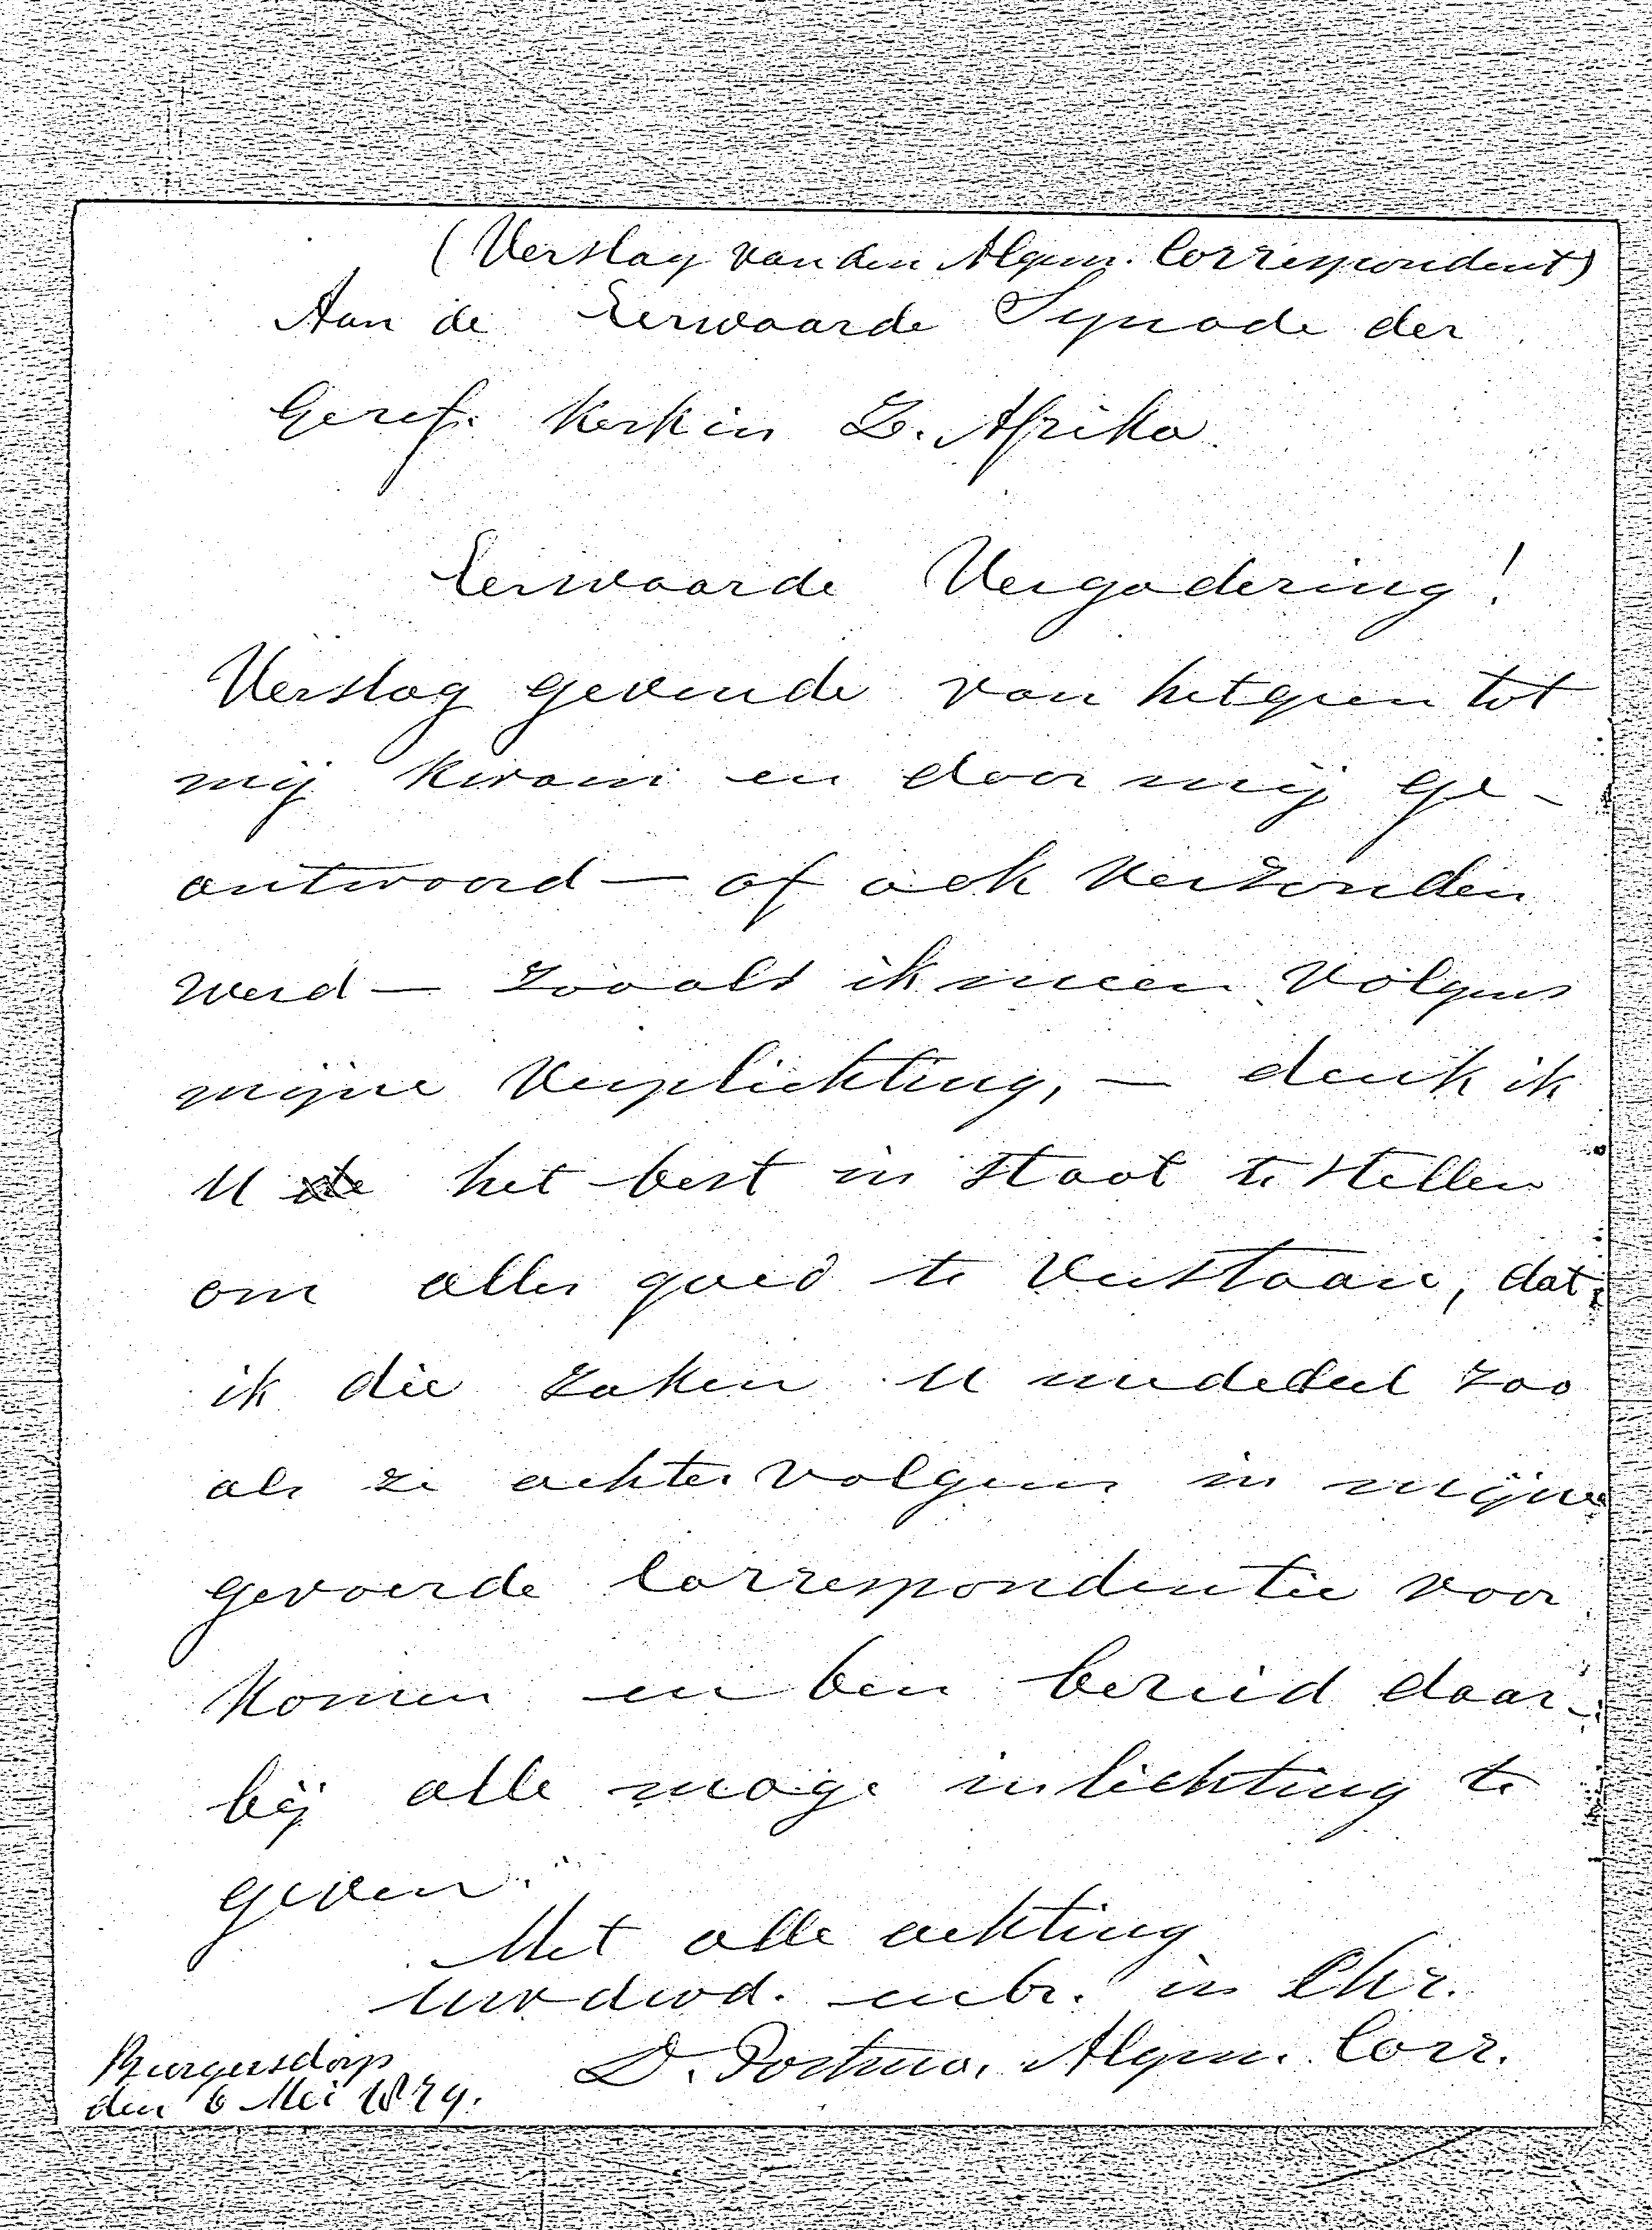 (Verslag van den Algem. Correspondent)
Aan de Eerwaarde Synode der
Geref. Kerk in Z. Afrika
Eerwaarde Vergadering!
Verslag gevende van hetgeen tot
mij kwam en door mij ge-
antwoord — of ook verzonden
werd — zooals ik meen volgens
mijne verplichting, — denk ik
U het best in staat te stellen
om alles goed te verstaan, dat
ik die zaken U mededeel zoo
als ze achtervolgens in mijne
gevoerde Correspondentie voor
komen en ben bereid daar-
bij alle moge inlichting te
geven.
Met alle achting
Uw dwd. mbr. in Chr.
D. Postma, Algem. Corr.
Burgersdorp
den 6 Mei 1879.